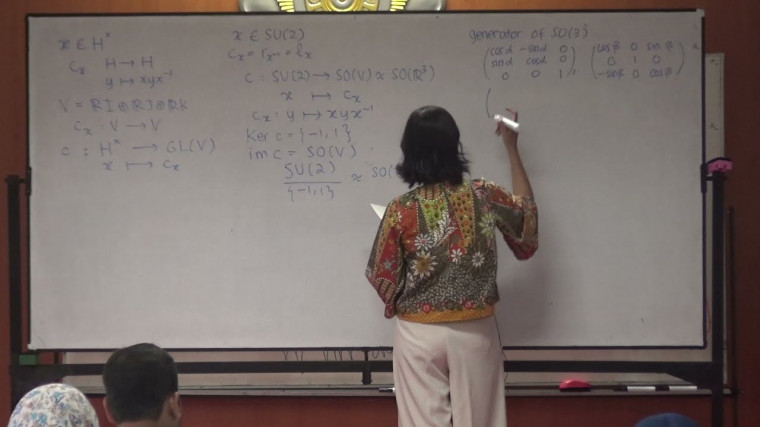 x ∈ H^×
c_x : H → H
y ↦ xyx⁻¹
V = RI ⊕ RJ ⊕ RK
c_x : V → V
c : H^× → GL(V)
x ↦ c_x
x ∈ SU(2)
c_x = r_{x⁻¹} ∘ l_x
c : SU(2) → SO(V) ≈ SO(R³)
x ↦ c_x
c_x : y ↦ xyx⁻¹
Ker c = {-1, 1}
im c = SO(V)
SU(2)
{-1, 1}
≈ SO(
generator of SO(3)
(cos α -sin α 0
sin α cos α 0
0 0 1),
(cos β 0 sin β
0 1 0
-sin β 0 cos β)
(